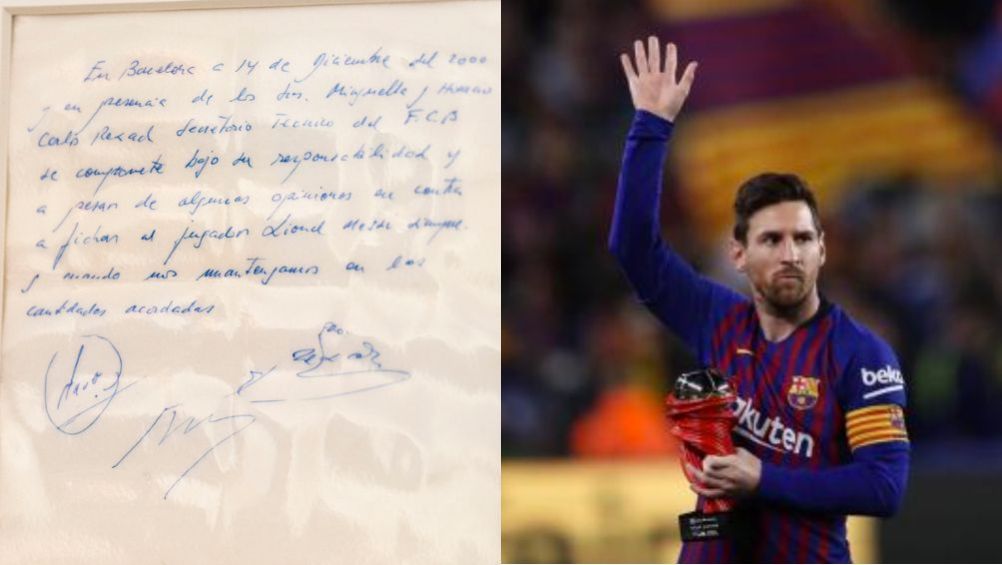 En Barcelona a 14 de Diciembre del 2000
y en presencia de los Srs. Minguella y Horacio
Carlos Rexach Secretario Tecnico del F.C.B
se compromete bajo su responsabilidad y
a pesar de algunas opiniones en contra
a fichar al jugador Lionel Messi siempre
y cuando nos mantengamos en las
cantidades acordadas
beko
Rakuten